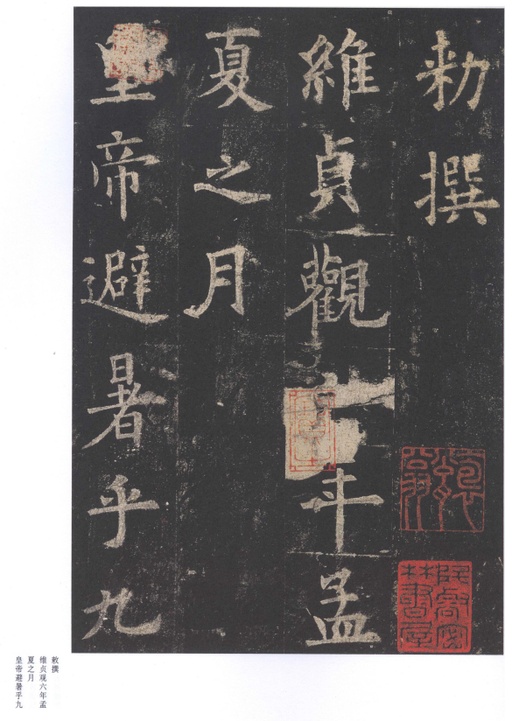 勑撰
維貞觀六年孟
夏之月
皇帝避暑乎九
敕撰
维贞观六年孟
夏之月
皇帝避暑乎九